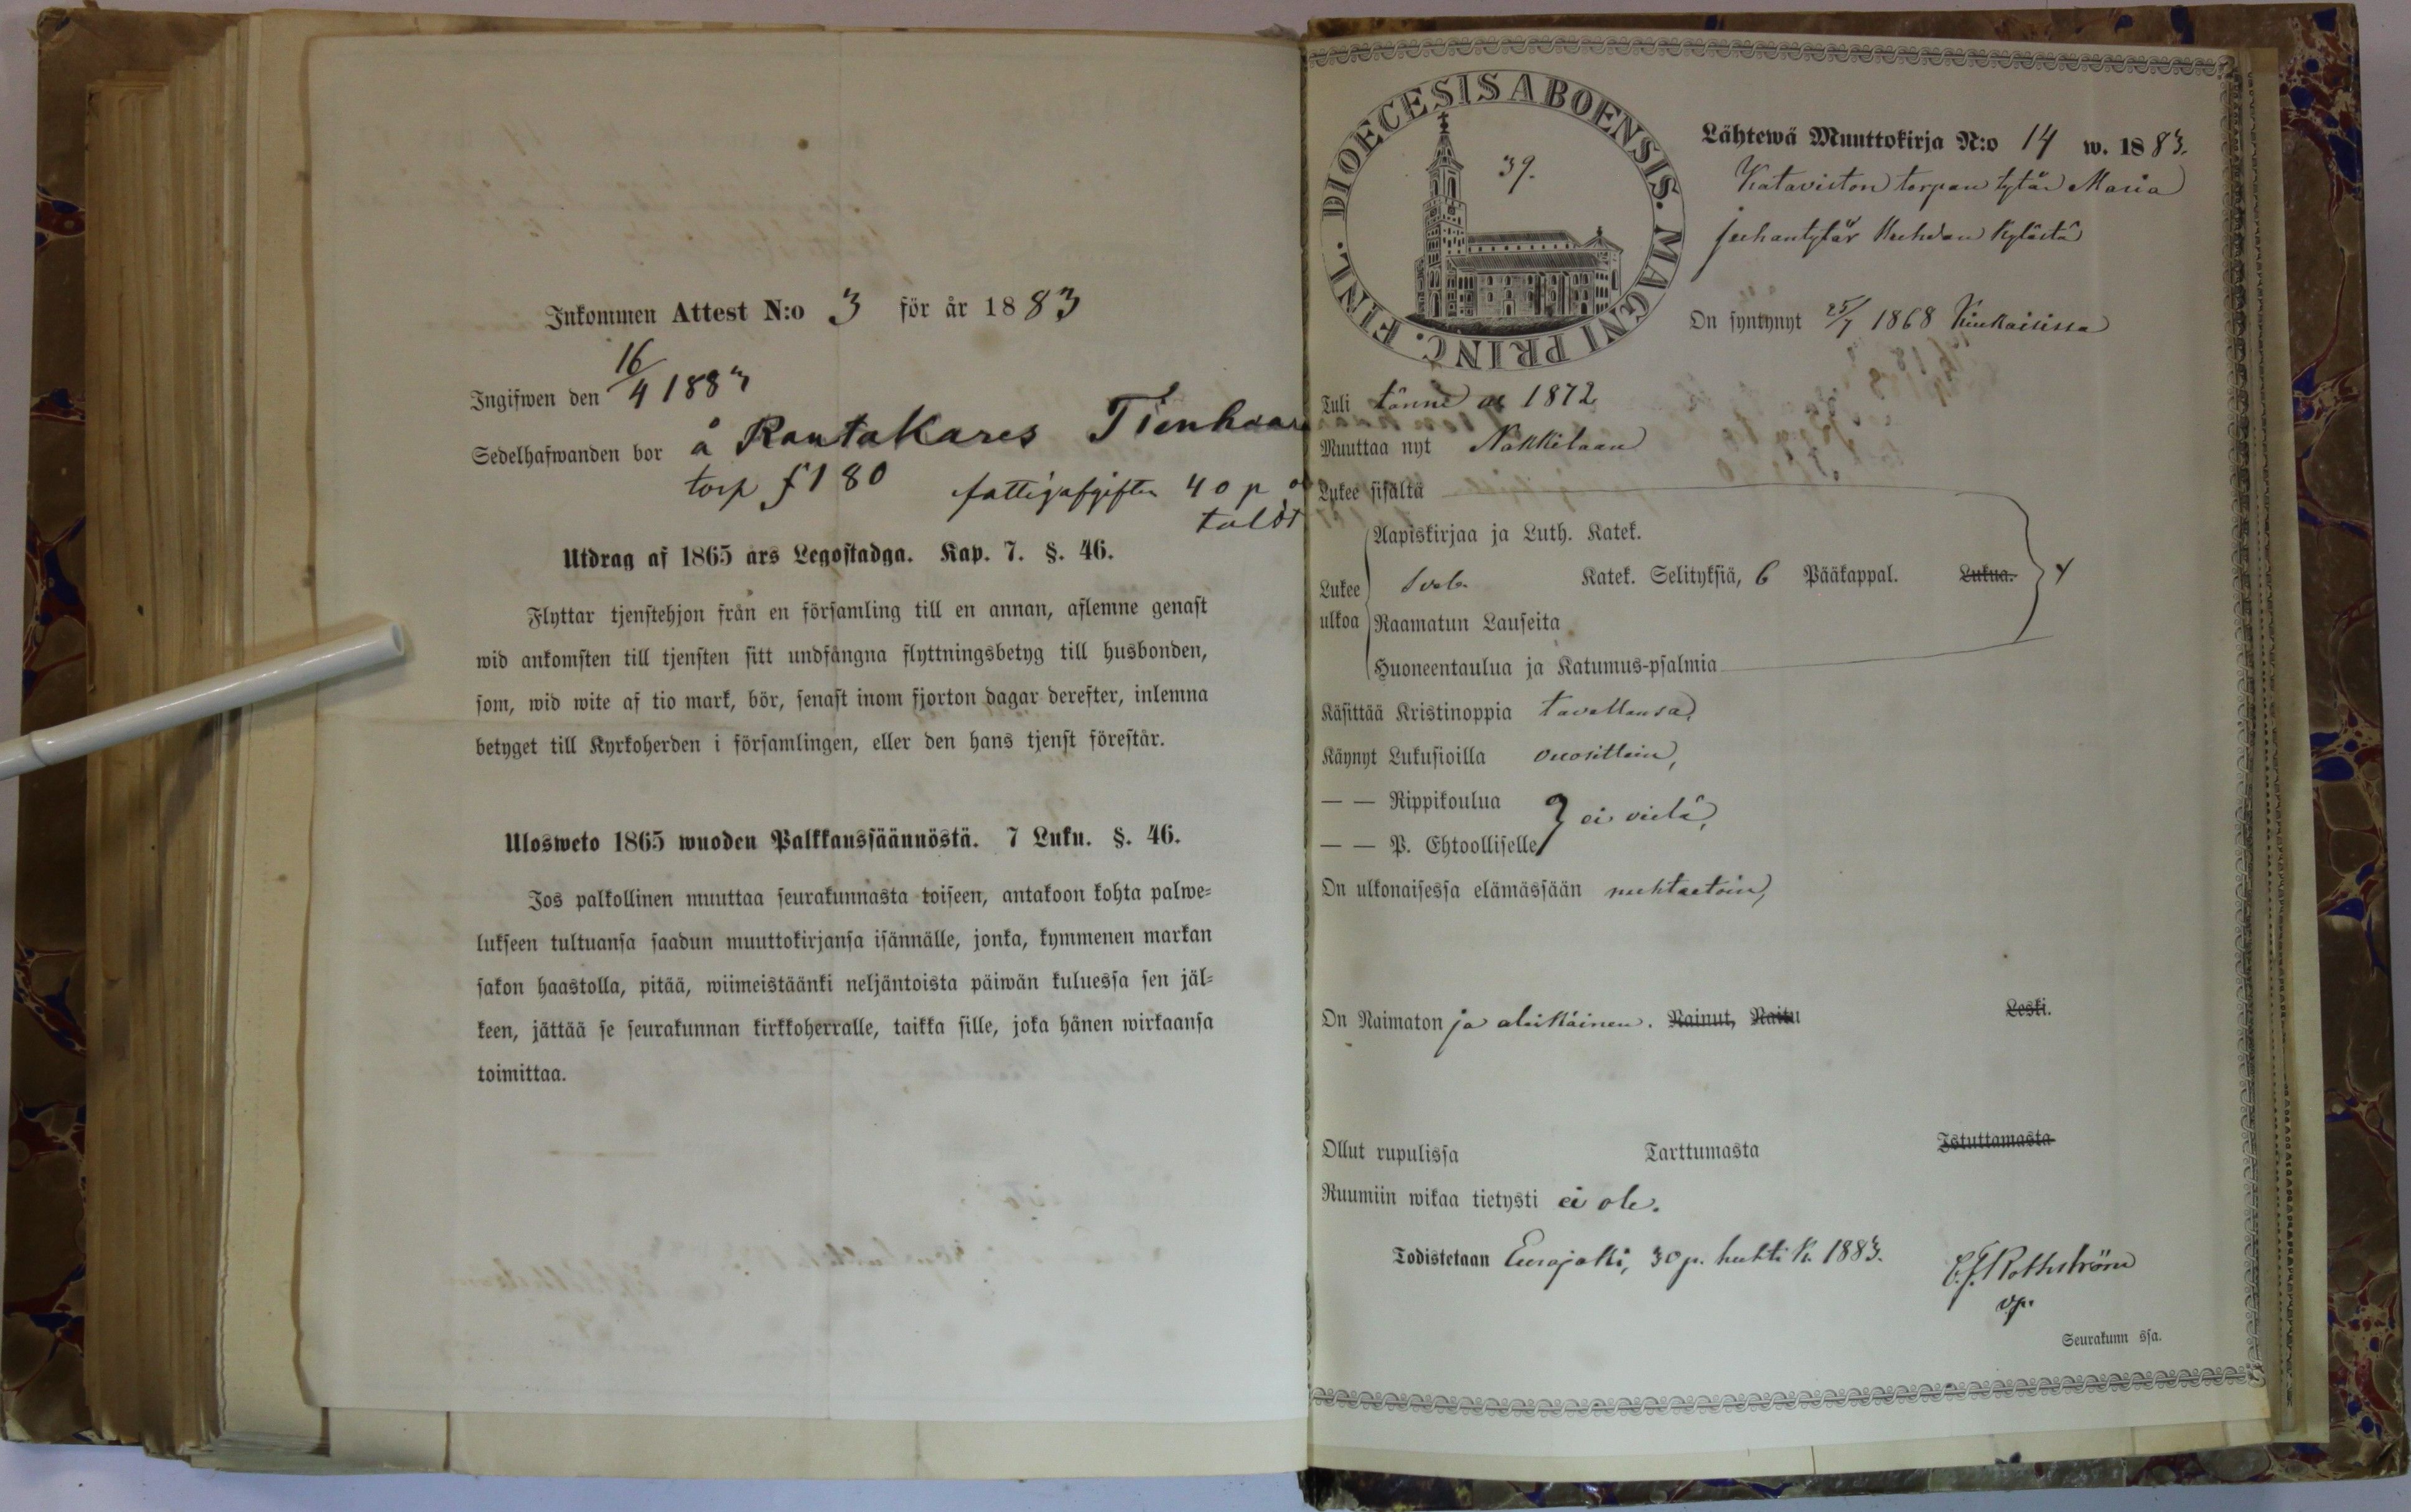 Inkommen Attest N:o 3 för år 1883
Ingifwen den 16/4 1883
Sedelhafwanden bor å Rantakares Tienhaar
torp f 180 fattigafgiften 40 p
Utdrag af 1865 års Legostadga. Kap. 7. §. 46.
Flyttar tjenstehjon från en församling till en annan, aflemne genast
wid ankomsten till tjensten sitt undfångna flyttningsbetyg till husbonden,
som, wid wite af tio mark, bör, senast inom fjorton dagar derefter, inlemna
betyget till Kyrkoherden i församlingen, eller den hans tjenst förestår.
Ulosweto 1865 wuoden Palkkaussäännöstä. 7 Luku. §. 46.
Jos palkollinen muuttaa seurakunnasta toiseen, antakoon kohta palwe=
lukseen tultuansa saadun muuttokirjansa isännälle, jonka, kymmenen markan
sakon haastolla, pitää, wiimeistäänki neljäntoista päiwän kuluessa sen jäl=
keen, jättää se seurakunnan kirkkoherralle, taikka sille, joka hänen wirkaansa
toimittaa.
DIOECESIS ABOENSIS. MAGNI PRINC. FINL.
39.
Lähtewä Muuttokirja N:o 14 w. 1883.
Kataviston torpan tytär Maria
Juhantytär kylästä
On syntynyt 25/7 1868 Kiukaisissa
Tuli tänne 1872
Muuttaa nyt Nakkilaan
Lukee sisältä
Aapiskirjaa ja Luth. Katek.
Lukee Sveb. Katek. Selityksiä, 6 Pääkappal. Lukua.
ulkoa Raamatun Lauseita
Huoneentaulua ja Katumus-psalmia
Käsittää Kristinoppia tavallansa,
Käynyt Lukusioilla vuosittain,
— — Rippikoulua
ei vielä,
— — P. Ehtoolliselle
On ulkonaisessa elämässään nuhteetoin,
On Naimaton ja alaikäinen. Nainut, Naitu Leski.
Ollut rupulissa Tarttumasta Istuttamasta
Ruumiin wikaa tietysti ei ole.
Todistetaan Eurajoki, 30 p. huhti k. 1883.
Rothström
vp.
Seurakunn ssa.